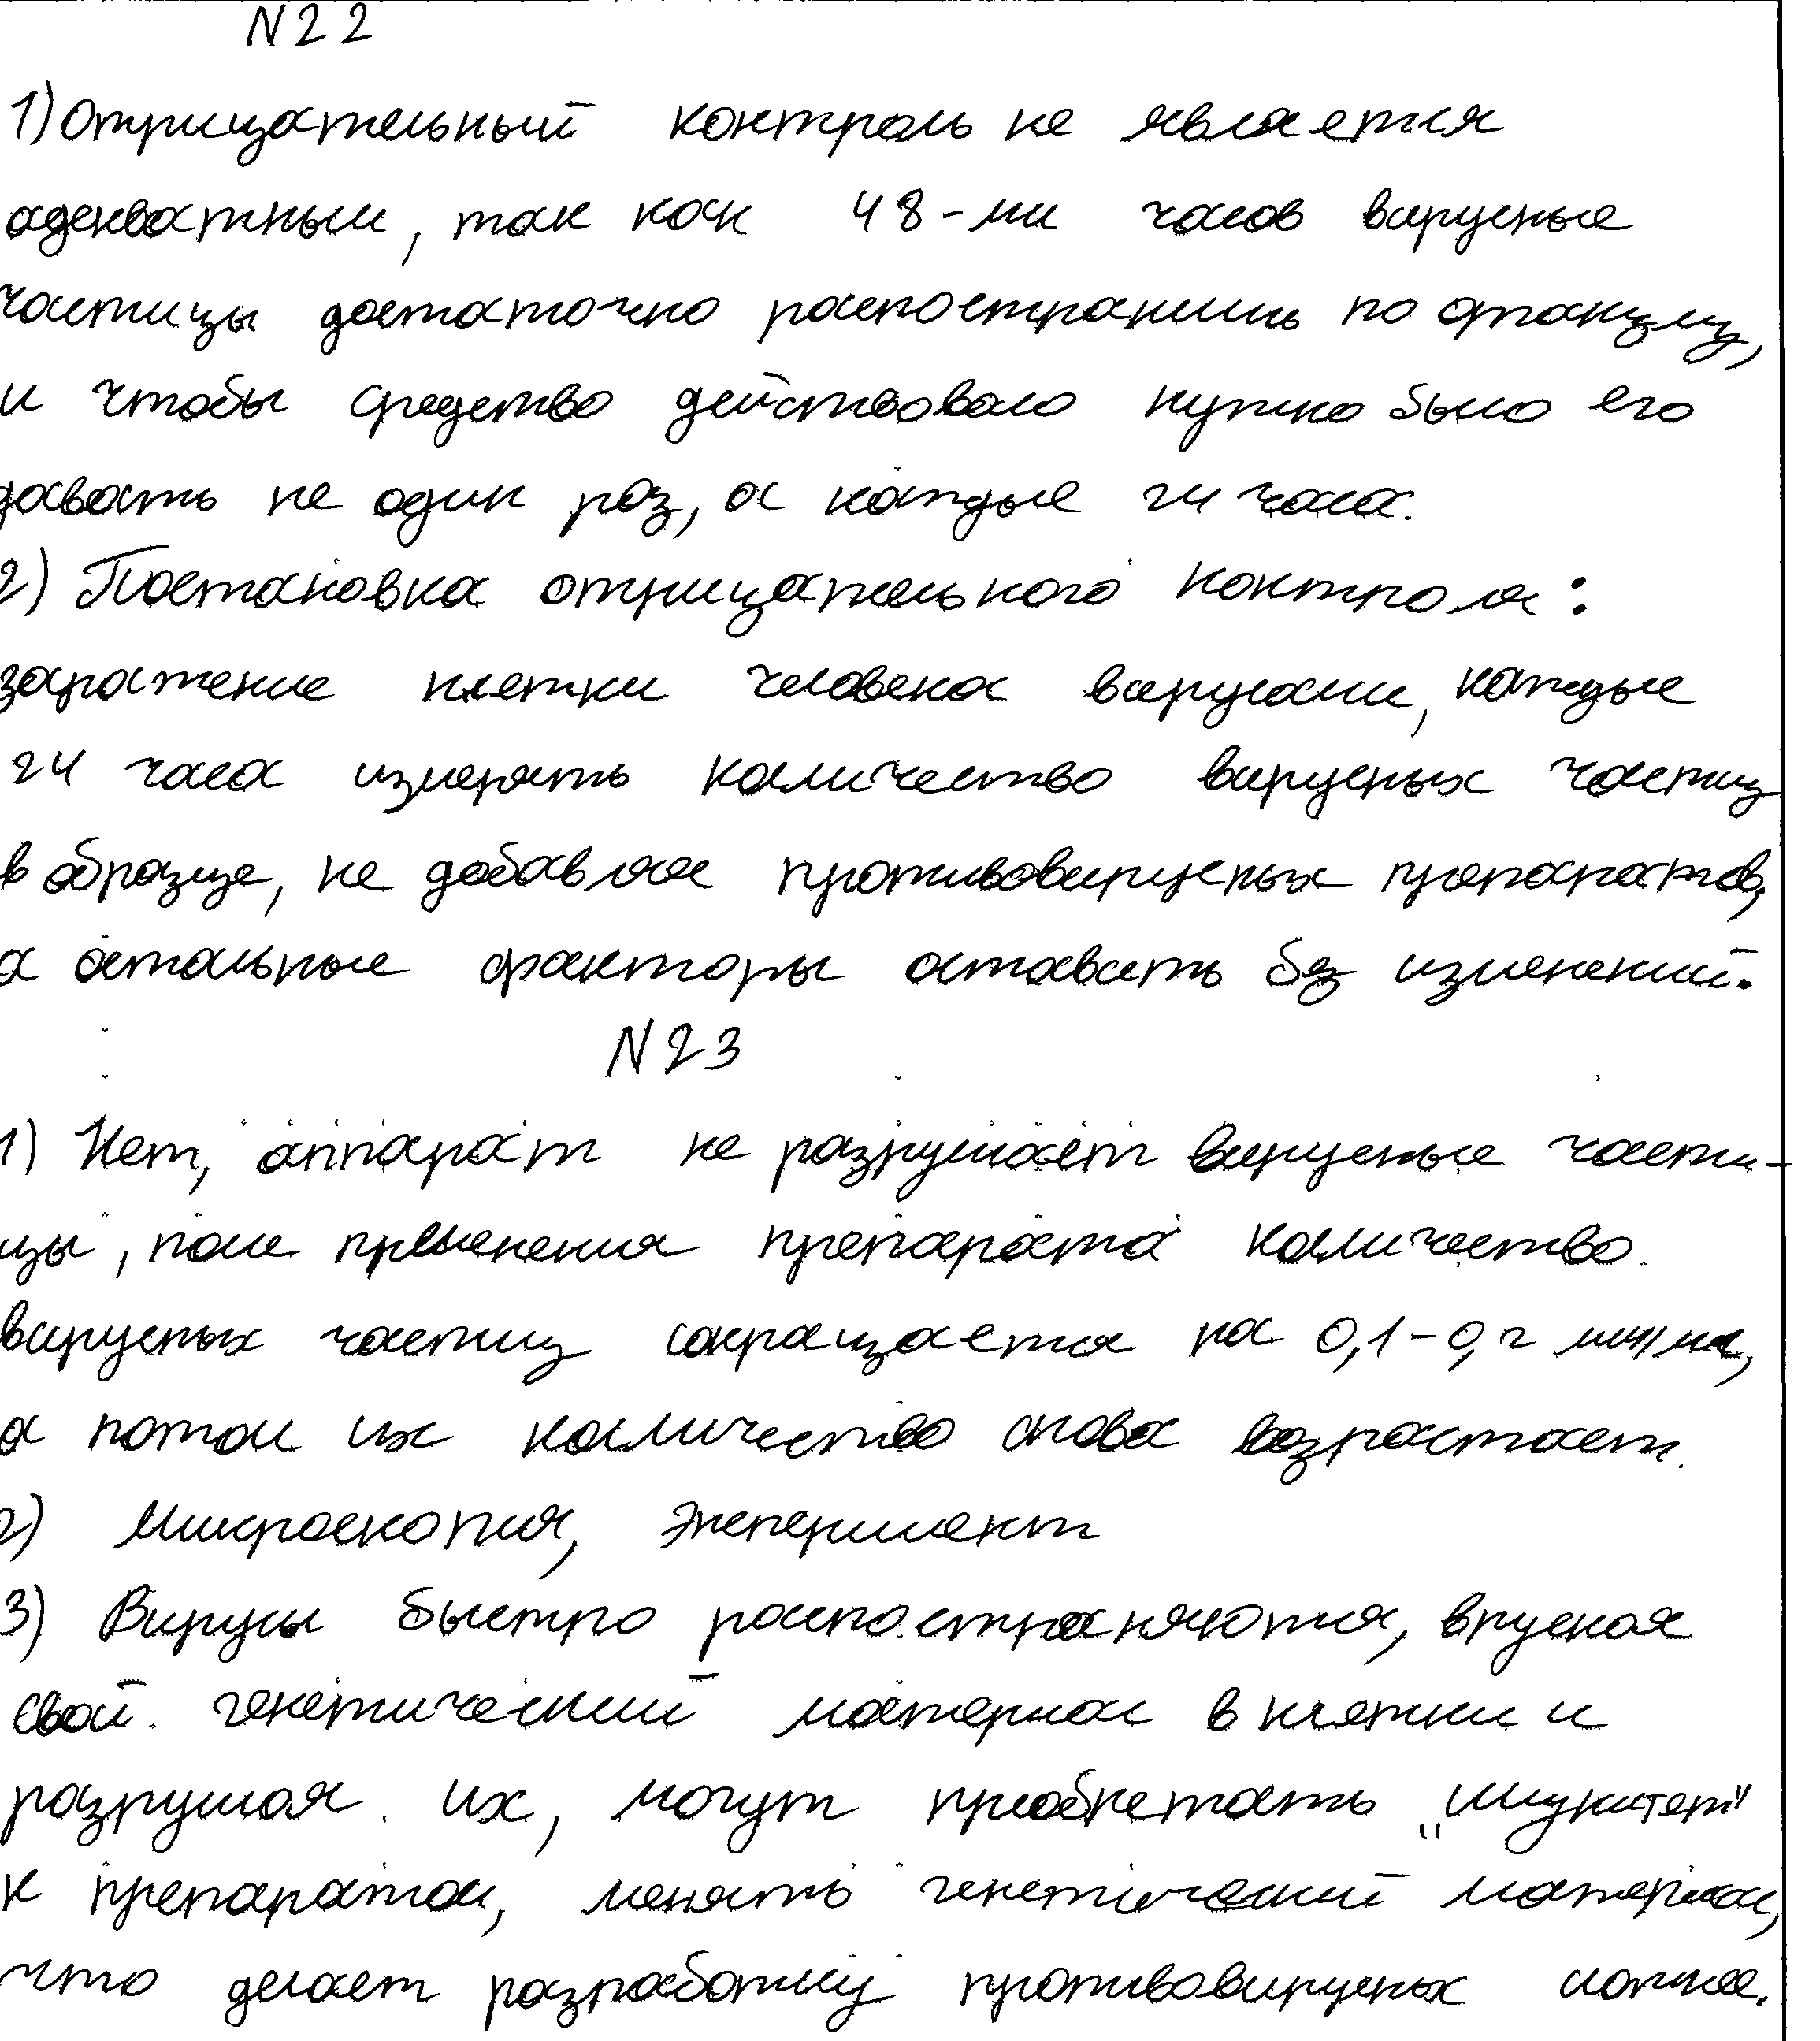 N22
1) Отрицательный контроль не является
адекватным, так как 48-ми часов вирусные
частицы достаточно распостранишь по организму,
и чтобы средство действовало нужно было его
давать не один раз, а каждые 24 часа.
2) Постановка отрицательного контроля:
заражение клетки человека вирусами, каждые
24 часа измерять количество вирусных частиц
в образце, не добавляя противовирусных препаратов,
а остальные факторы оставить без изменений.
N23
1) Нет, аппарат не разрушает вирусные части-
цы, после применения препарата количество
вирусных частиц сокращается на 0,1-0,2 шт/мл,
а потом их количество снова возрастает.
2) Микроскопия, эксперимент
3) Вирусы быстро распостраняются, впуская
свой генетический материал в клетки и
разрушая их, могут приобретать „имунитет"
к препаратам, менять генетический материал,
что делает разработку противовирусных сложнее.